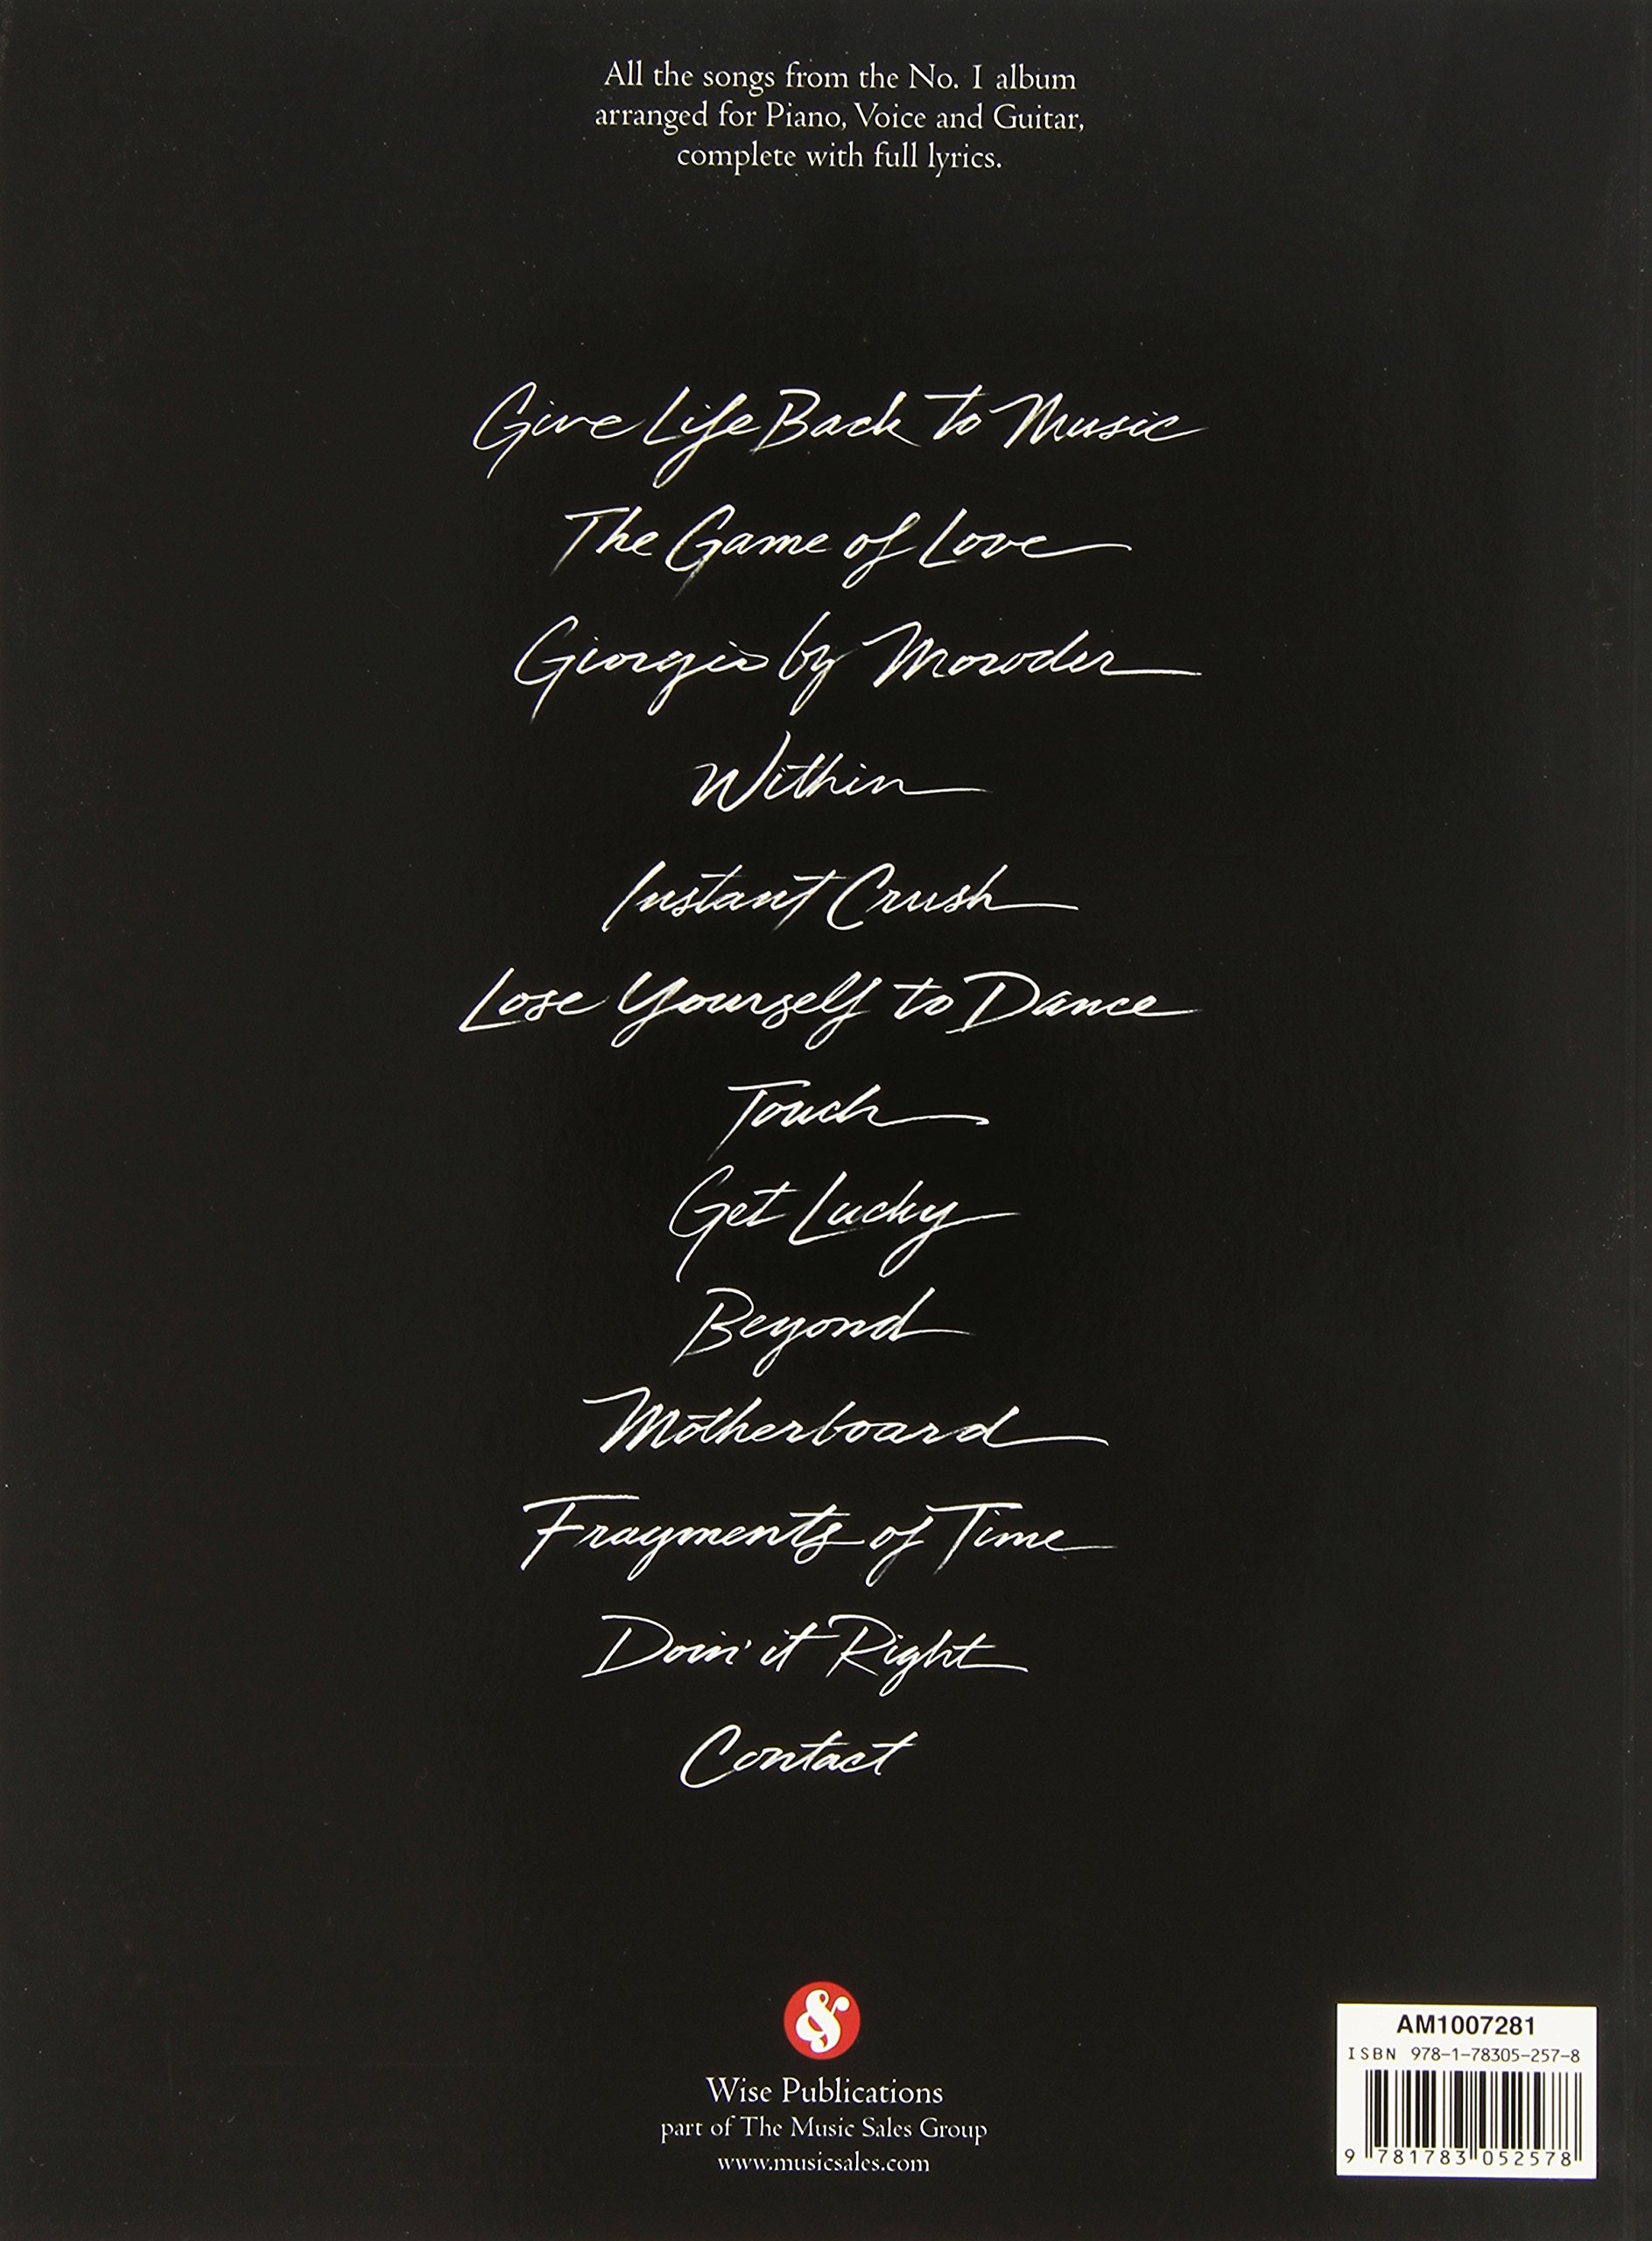 All the songs from the No. 1 album
arranged for Piano, Voice and Guitar,
complete with full lyrics.
Give Life Back to Music
The Game of Love
Giorgio by Moroder
Within
Instant Crush
Lose Yourself to Dance
Touch
Get Lucky
Beyond
Motherboard
Fragments of Time
Doin' it Right
Contact
&
Wise Publications
part of The Music Sales Group
www.musicsales.com
AM1007281
ISBN 978-1-78305-257-8
9 781783 052578